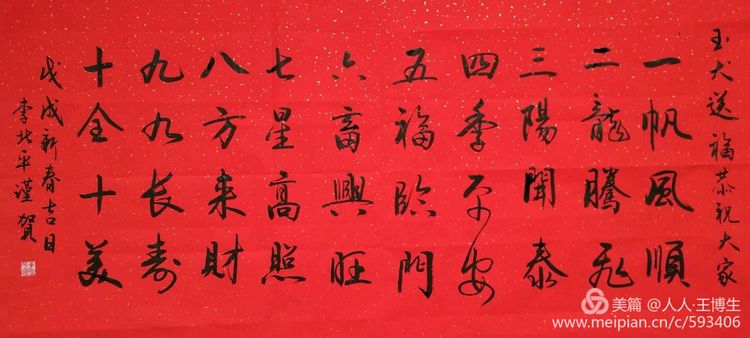 玉犬送福恭祝大家
一帆風順
二龍騰飛
三陽開泰
四季平安
五福臨門
六畜興旺
七星高照
八方来財
九九长寿
十全十美
戊戌新春吉日
李北平謹賀
美篇 @人人·王博生
www.meipian.cn/c/593406